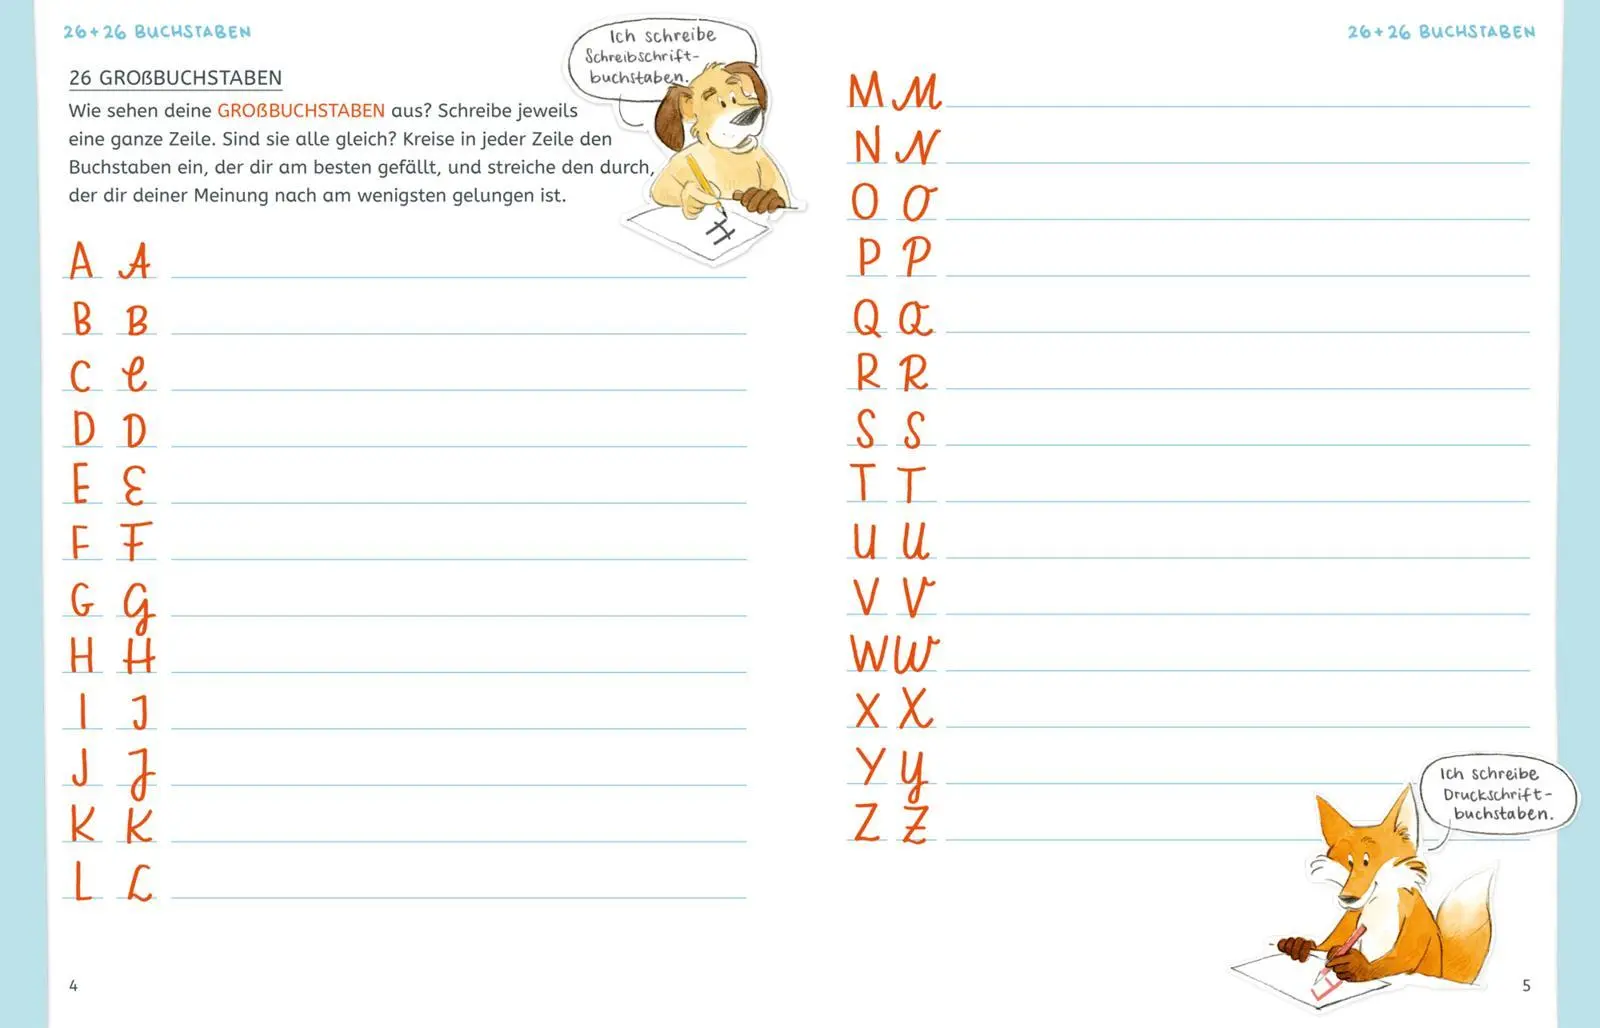 26+26 BUCHSTABEN
26 GROßBUCHSTABEN
Wie sehen deine GROßBUCHSTABEN aus? Schreibe jeweils
eine ganze Zeile. Sind sie alle gleich? Kreise in jeder Zeile den
Buchstaben ein, der dir am besten gefällt, und streiche den durch,
der dir deiner Meinung nach am wenigsten gelungen ist.
Ich schreibe
Schreibschrift-
buchstaben.
H
A A
B B
C C
D D
E E
F F
G G
H H
I I
J J
K K
L L
4
26+26 BUCHSTABEN
M M
N N
O O
P P
Q Q
R R
S S
T T
U U
V V
W W
X X
Y Y
Z Z
Ich schreibe
Druckschrift-
buchstaben.
5